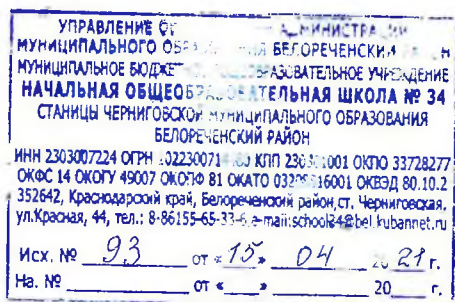 УПРАВЛЕНИЕ АДМИНИСТРАЦИИ
МУНИЦИПАЛЬНОГО БЕЛОРЕЧЕНСКИЙ
МУНИЦИПАЛЬНОЕ УЧРЕЖДЕНИЕ
НАЧАЛЬНАЯ ОБЩЕОБРАЗОВАТЕЛЬНАЯ ШКОЛА № 34
СТАНИЦЫ ЧЕРНИГОВСКОЙ МУНИЦИПАЛЬНОГО ОБРАЗОВАНИЯ
БЕЛОРЕЧЕНСКИЙ РАЙОН
ИНН 2303007224 ОГРН КПП ОКПО 33728277
ОКФС 14 ОКОГУ 49007 ОКОПФ 81 ОКАТО ОКВЭД 80.10.2
352642, Краснодарский край, Белореченский район, ст. Черниговская,
ул.Красная, 44, тел.: e-mail:school34@bel.kubannet.ru
Исх. № 93 от « 15 » 04 2021 г.
На. № от « » 20 г.